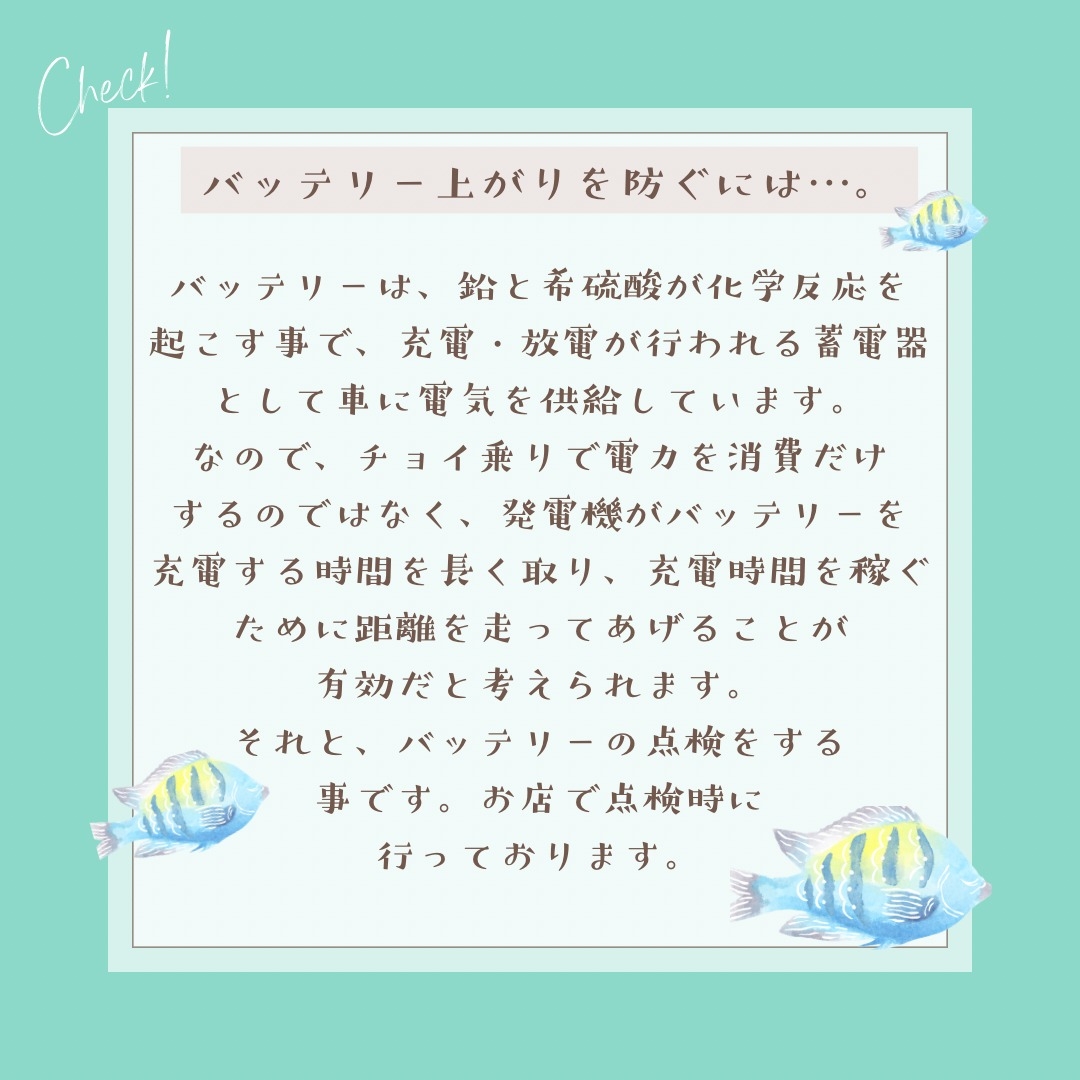 Check!
バッテリー上がりを防ぐには…。
バッテリーは、鉛と希硫酸が化学反応を
起こす事で、充電・放電が行われる蓄電器
として車に電気を供給しています。
なので、チョイ乗りで電力を消費だけ
するのではなく、発電機がバッテリーを
充電する時間を長く取り、充電時間を稼ぐ
ために距離を走ってあげることが
有効だと考えられます。
それと、バッテリーの点検をする
事です。お店で点検時に
行っております。